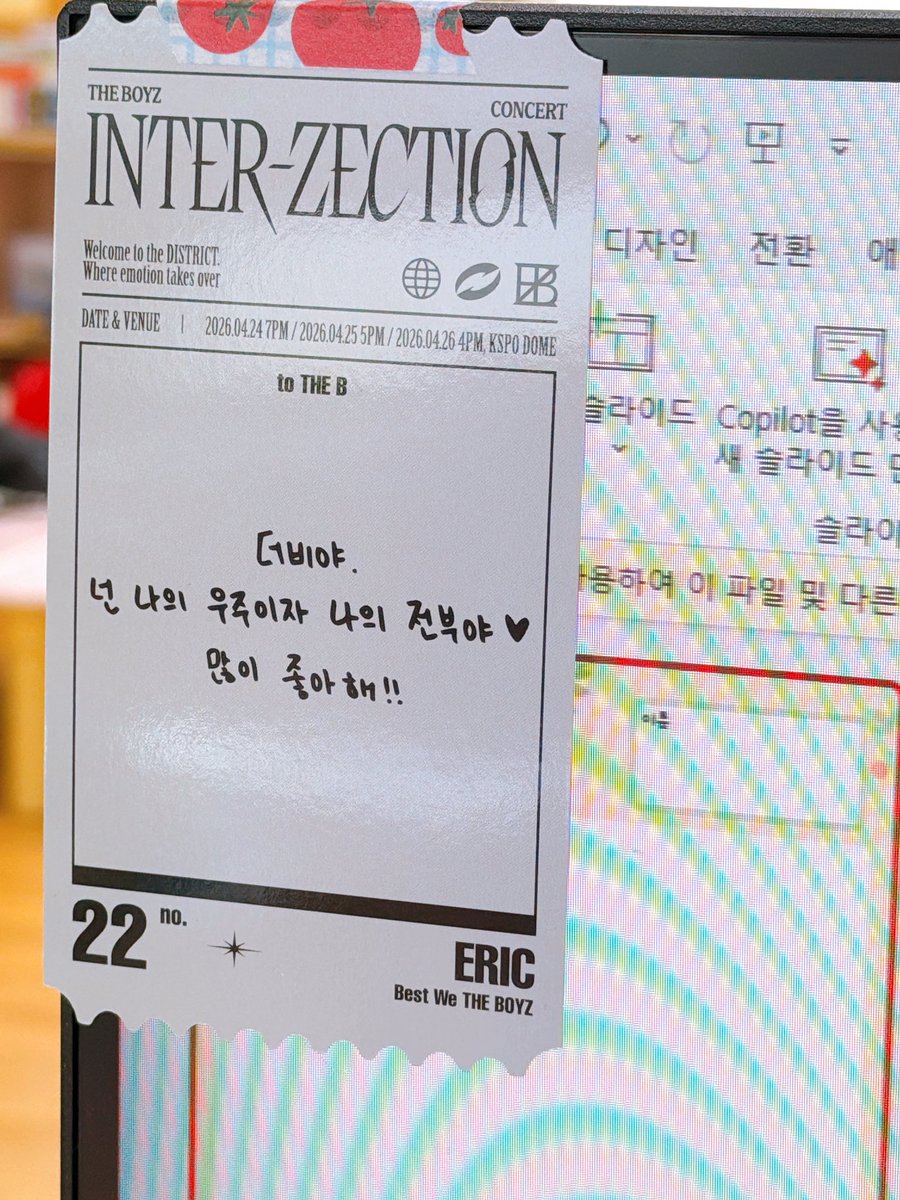 THE BOYZ
CONCERT
INTER-ZECTION
Welcome to the DISTRICT.
Where emotion takes over
DATE & VENUE | 2026.04.24 7PM / 2026.04.25 5PM / 2026.04.26 4PM, KSPO DOME
to THE B
더비야.
넌 나의 우주이자 나의 전부야 ♥
많이 좋아해!!
22 no.
ERIC
Best We THE BOYZ
디자인 전환 애
슬라이드
Copilot을 사용
새 슬라이드 만
슬라이
사용하여 이 파일 및 다른